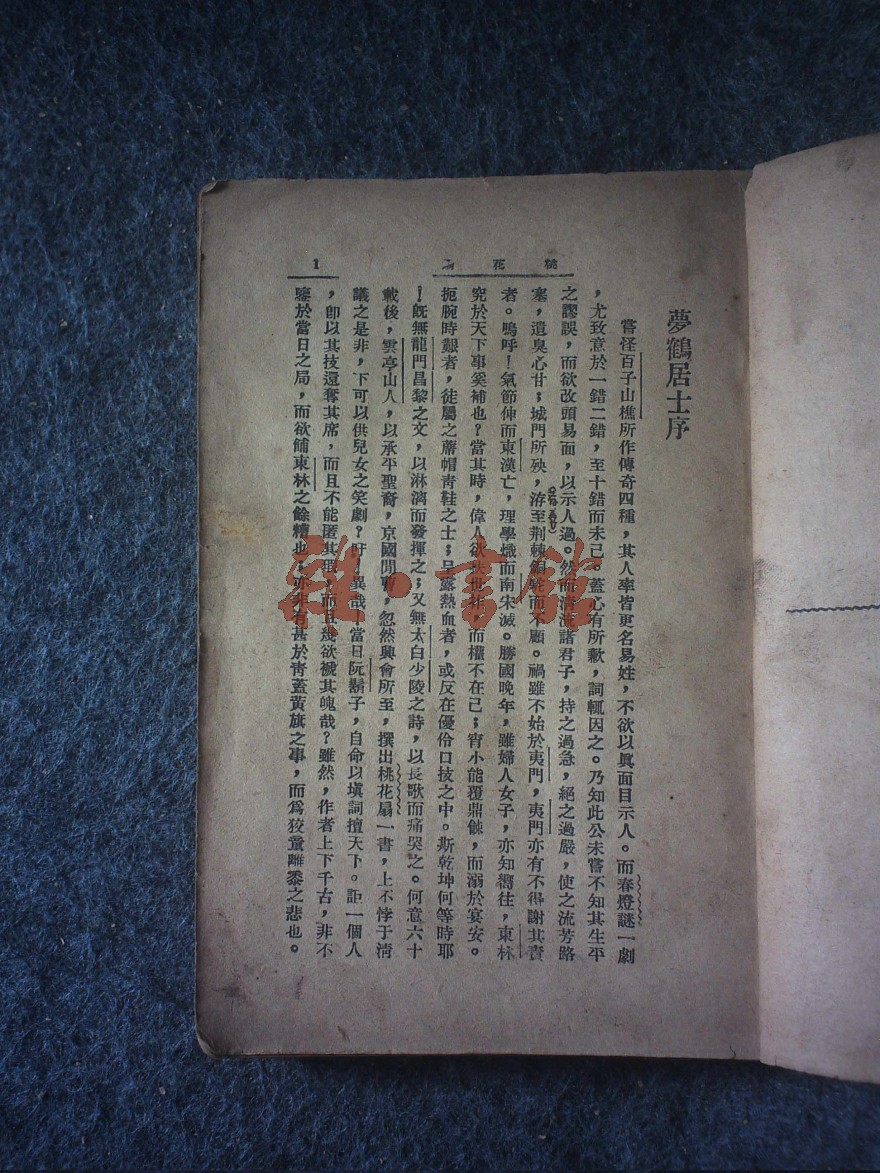 桃花
1
夢鶴居士序
嘗怪百子山樵所作傳奇四種，其人率皆更名易姓，不欲以眞面目示人。而春燈謎一劇
，尤致意於一錯二錯，至十錯而未已。蓋心有所歉，詞輒因之。乃知此公未嘗不知其生平
之謬誤，而欲改頭易面，以示人過。然而清流諸君子，持之過急，絕之過嚴，使之流芳路
塞，遺臭心甘；城門所殃，洊至荆棘銅駝而不顧。禍雖不始於夷門，夷門亦有不得謝其責
者。嗚呼！氣節伸而東漢亡，理學熾而南宋滅。勝國晚年，雖婦人女子，亦知嚮往，東林
究於天下事奚補也？當其時，偉人欲扶世祚，而權不在己；宵小能覆鼎餗，而溺於宴安。
扼腕時艱者，徒屬之蓆帽青鞋之士；呈露熱血者，或反在優伶口技之中。斯乾坤何等時耶
！旣無龍門昌黎之文，以淋漓而發揮之；又無太白少陵之詩，以長歌而痛哭之。何意六十
載後，雲亭山人，以承平聖裔，京國閒曹，忽然興會所至，撰出桃花扇一書，上不悖于清
議之是非，下可以供兒女之笑劇？吁！異哉！當日阮鬍子，自命以塡詞擅天下。詎一個人
，卽以其技還奪其席，而且不能匿其瑕，而且幾欲褫其魄哉？雖然，作者上下千古，非不
鑒於當日之局，而欲餔東林之餘糟也；亦非有甚於靑蓋黃旗之事，而爲狡童離黍之悲也。
雜·書館